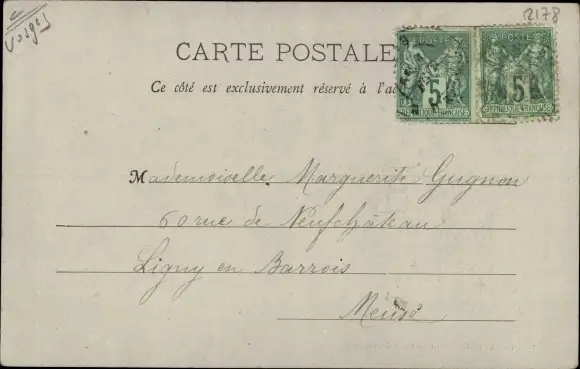 Vosges
R178
CARTE POSTALE
Ce côté est exclusivement réservé à l'a
POSTE POSTE
5 5
REPUBLIQUE FRANÇAISE REPUBLIQUE FRANÇAISE
Mademoiselle Marguerite Gugnon
60 rue de Neufchâteau
Ligny en Barrois
Meuse